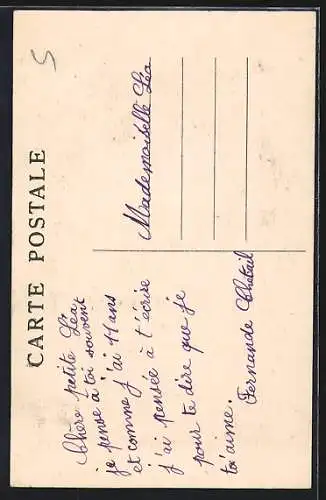 5
CARTE POSTALE
Chère petite Léa
je pense à toi souvent
et comme j'ai 11 ans
j'ai pensée à t'écrise
pour te dire que je
toi aime.
Fernande Chetail
Mademoiselle Léa